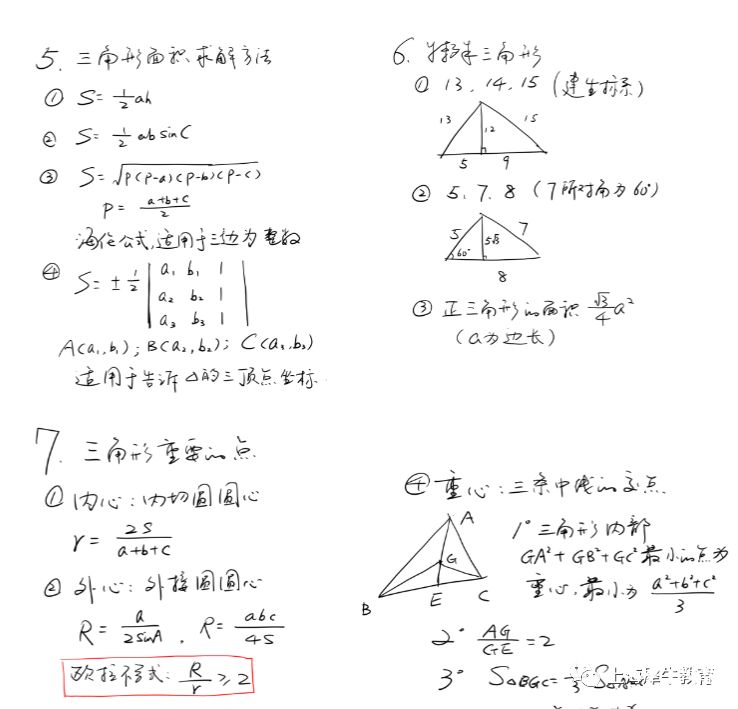 5. 三角形面积求解方法
① S=½ah
② S=½absinC
③ S=√P(P-a)(P-b)(P-c)
P=(a+b+c)/2
海伦公式,适用于三边为整数
④ S=±½ |a₁ b₁ 1|
|a₂ b₂ 1|
|a₃ b₃ 1|
A(a₁,b₁); B(a₂,b₂); C(a₃,b₃)
适用于告诉△的三顶点坐标.
6. 特殊三角形
① 13、14、15 (建坐标系)
13 12 15
5 9
② 5、7、8 (7所对角为60°)
5 5√3 7
60°
8
③ 正三角形的面积 √3/4 a²
(a为边长)
7. 三角形重要的点
① 内心:内切圆圆心
r=2S/(a+b+c)
② 外心:外接圆圆心
R=a/2sinA , R=abc/4S
欧拉不等式: R/r ≥2
④ 重心:三条中线的交点
A
G
B E C
1° 三角形内部
GA²+GB²+GC²最小的点为
重心,最小为 (a²+b²+c²)/3
2° AG/GE=2
3° S△BGC=